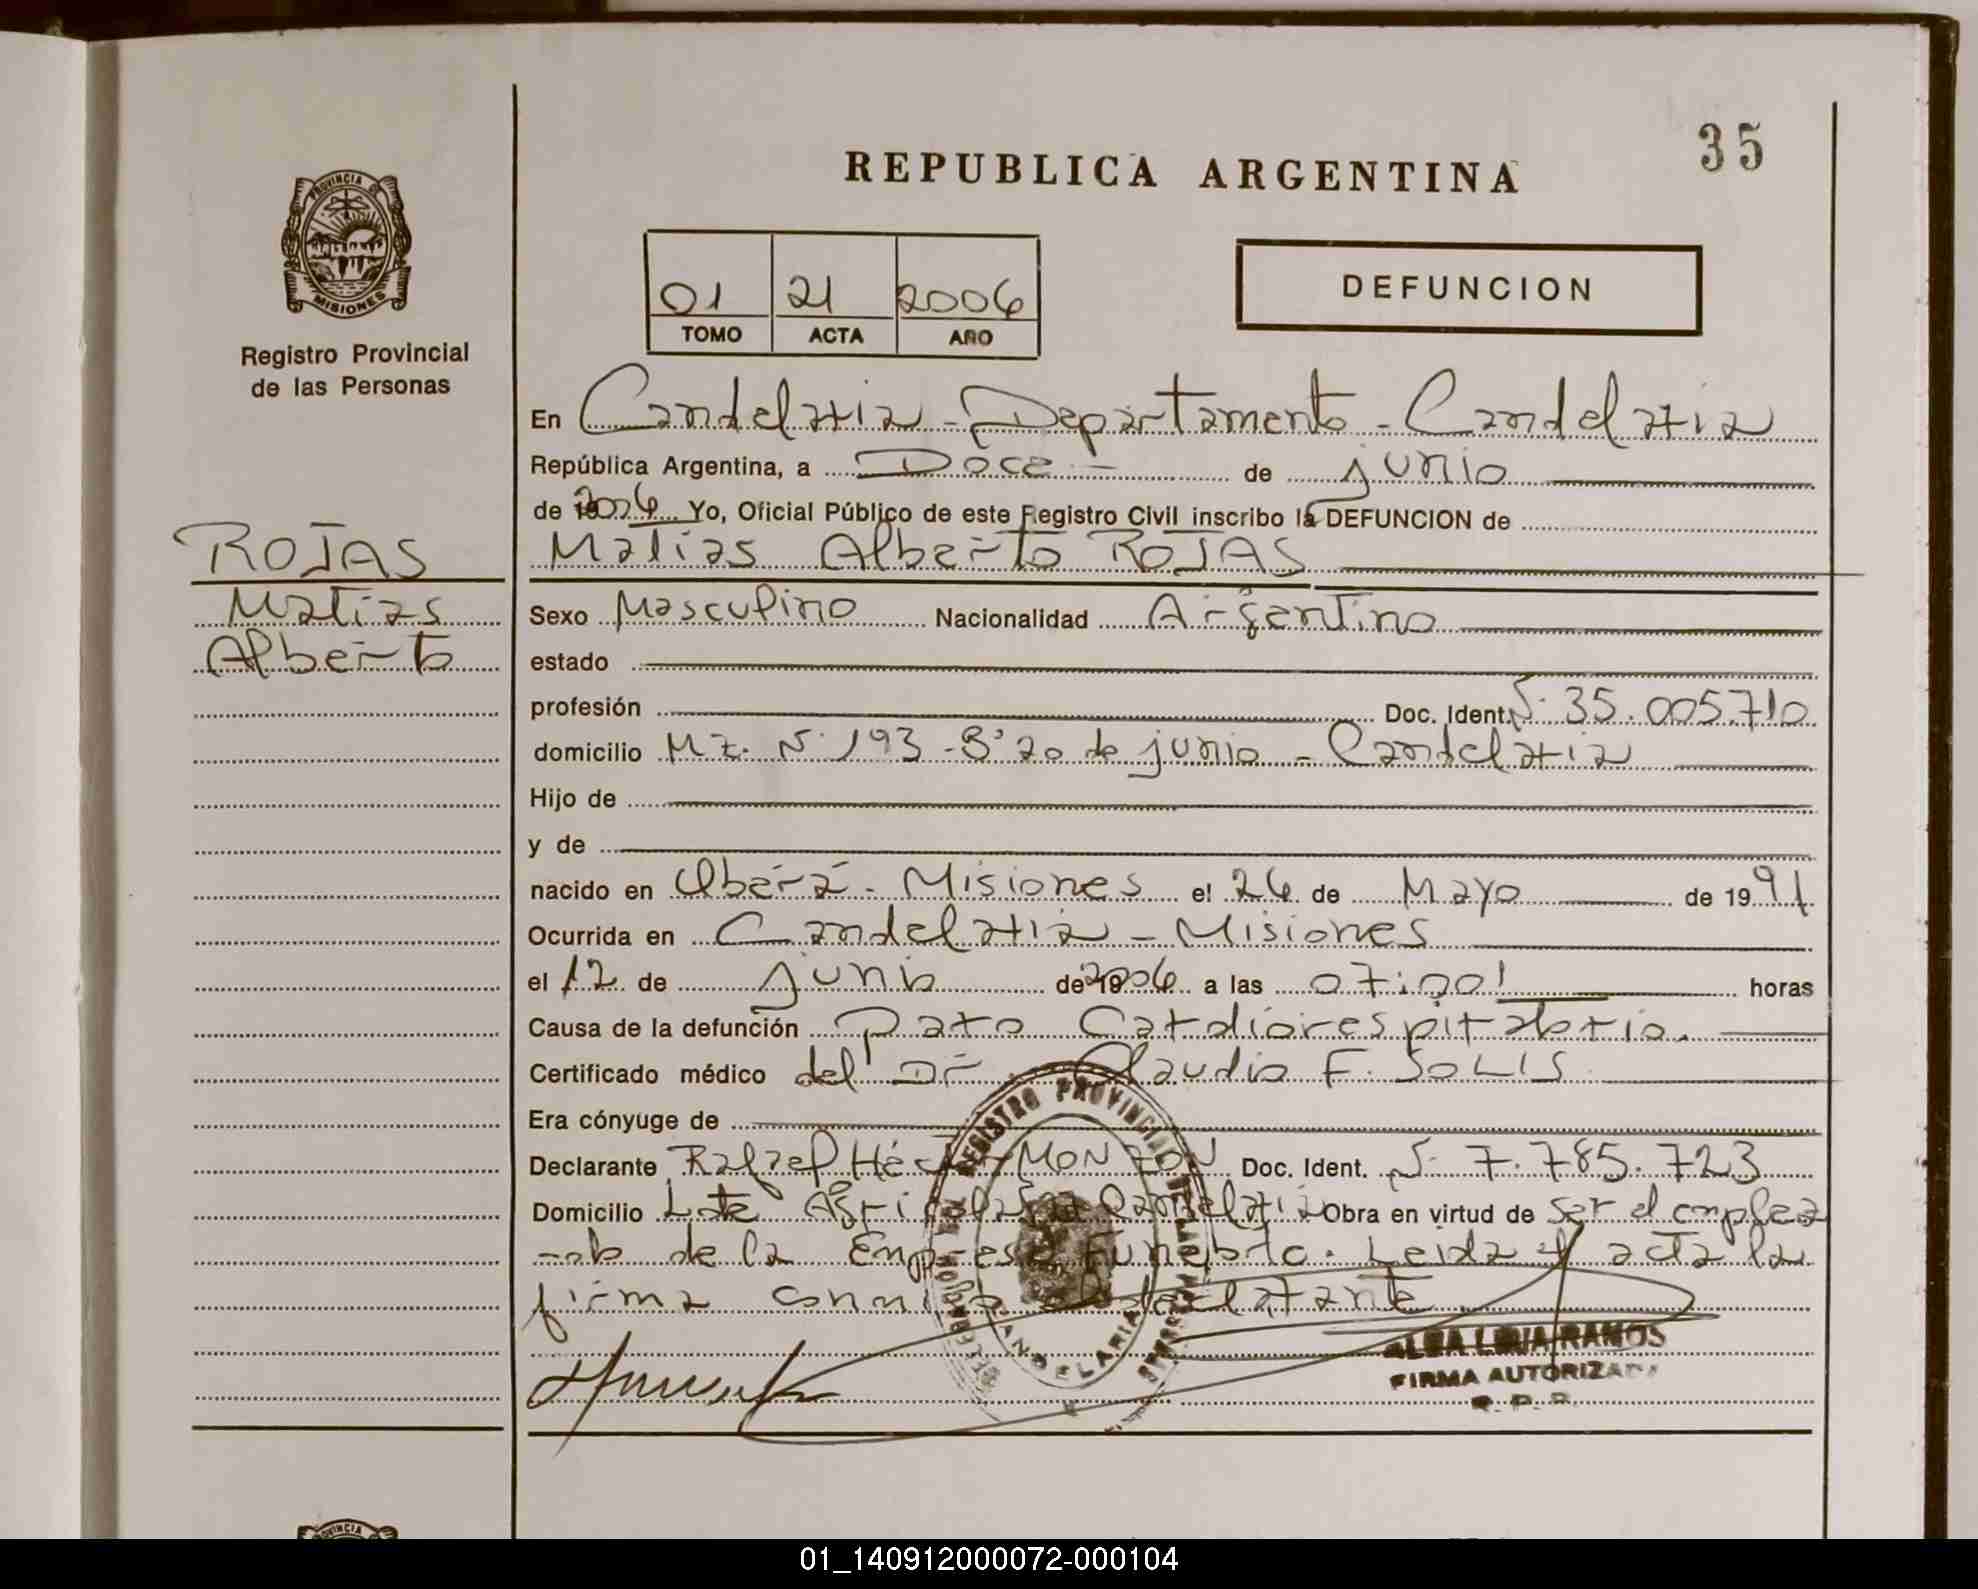 35
REPUBLICA ARGENTINA
PROVINCIA DE
MISIONES
Registro Provincial
de las Personas
01 21 2006
TOMO ACTA AÑO
DEFUNCION
En Candelaria - Departamento - Candelaria
República Argentina, a Doce - de junio
de 2006 Yo, Oficial Público de este Registro Civil inscribo la DEFUNCION de
ROJAS
Matias
Alberto
Matias Alberto ROJAS
Sexo Masculino Nacionalidad Argentino
estado
profesión Doc. Ident. N° 35.005.710
domicilio Mz. N° 193 - B° 20 de junio - Candelaria
Hijo de
y de
nacido en Oberá - Misiones el 26 de Mayo de 1991
Ocurrida en Candelaria - Misiones
el 12 de junio de 2006 a las 07:00' horas
Causa de la defunción Paro Cardiorespiratorio.
Certificado médico del Dr. Claudio F. SOLIS
Era cónyuge de
Declarante Rafael Héctor MONZON Doc. Ident. N° 7.785.723
Domicilio Lote Agrícola Candelaria Obra en virtud de ser el emplea
-do de la Empresa Funebre. Leida el acta la
firma conmigo el declarante
REGISTRO PROVINCIAL DE LAS PERSONAS
CANDELARIA
MISIONES
ALBA LIDIA RAMOS
FIRMA AUTORIZADA
R. P. P.
PROVINCIA
01_140912000072-000104